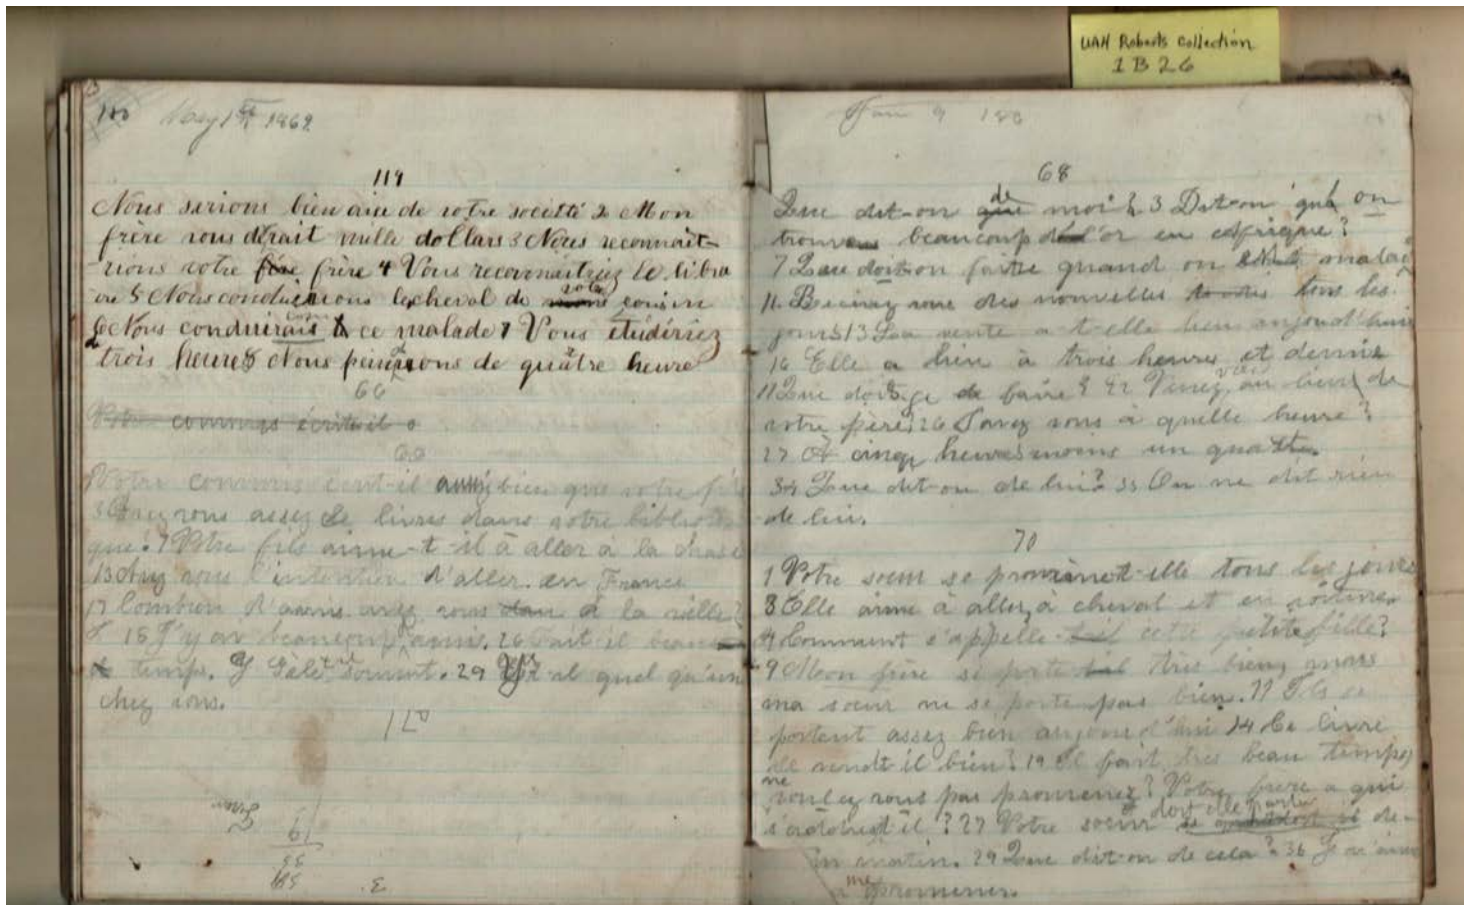 UAH Roberts Collection
1B26
100 May 1st 1869
119
Nous serions bien aise de votre société 2 Mon
frère vous devrait mille dollars 3 Nous reconnaît-
rions votre frère 4 Vous reconnaîtriez le libra
ire 5 Nous conduirions le cheval de votre cousin
6 Nous conduirais ce malade 7 Vous étudiriez
trois heures 8 Nous de quatre heure
66
Votre commis écrit il
66
Votre commis écrit-il aussi bien que votre fils
3 Avez vous assez de livres dans votre biblio
que? 7 Votre fils aime-t-il à aller à la chasse
13 Avez vous l'intention d'aller en France
17 Combien d'amis avez vous à la ville?
18 J'y ai beaucoup amis. 26 Fait il beau
temps. 29 Y a-t-il quel qu'un
chez vous.
170
19
35
3.
Jan 9 186
68
Que dit-on de moi? 3 Dit-on qu' on
trouve beaucoup d'or en Afrique?
7 Que doit-on faire quand on est malade
11. Recevez vous des nouvelles tous les
jours 13 La vente a-t-elle lieu aujourd'hui
16 Elle a lieu à trois heures et demie
17 Que dois je faire? 22 Venez au lieu de
votre père. 26 Savez vous à quelle heure?
27 À cinq heures moins un quart.
34 Que dit-on de lui? 35 On ne dit rien
de lui.
70
1 Votre soeur se promene-t-elle tous les jours
3 Elle aime à aller à cheval et en voiture
4 Comment s'appelle cette petite fille?
9 Mon frère se porte très bien, mais
ma soeur ne se porte pas bien. 11 Ils se
portent assez bien aujourd'hui 14 Ce livre
se vendt il bien? 19 Il fait très beau temps
ne
voulez vous pas promenez? Votre frère a qui
s'adresse il? 27 Votre soeur doit elle partir de-
in matin. 29 Que dit-on de cela? 36 J'aime
a me promener.